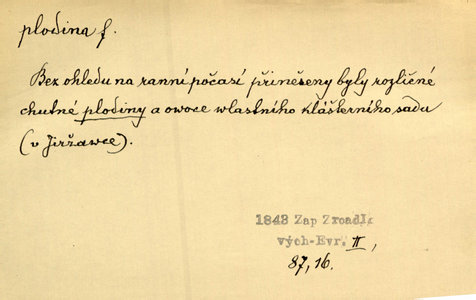 plodina f.
Bez ohledu na ranní počasí přinešeny byly rozličné
chutné plodiny a owoce wlastního klášterního sadu
(v Jiržawce).
1843 Zap Zrcadl.
vých-Evr. II,
87,16.